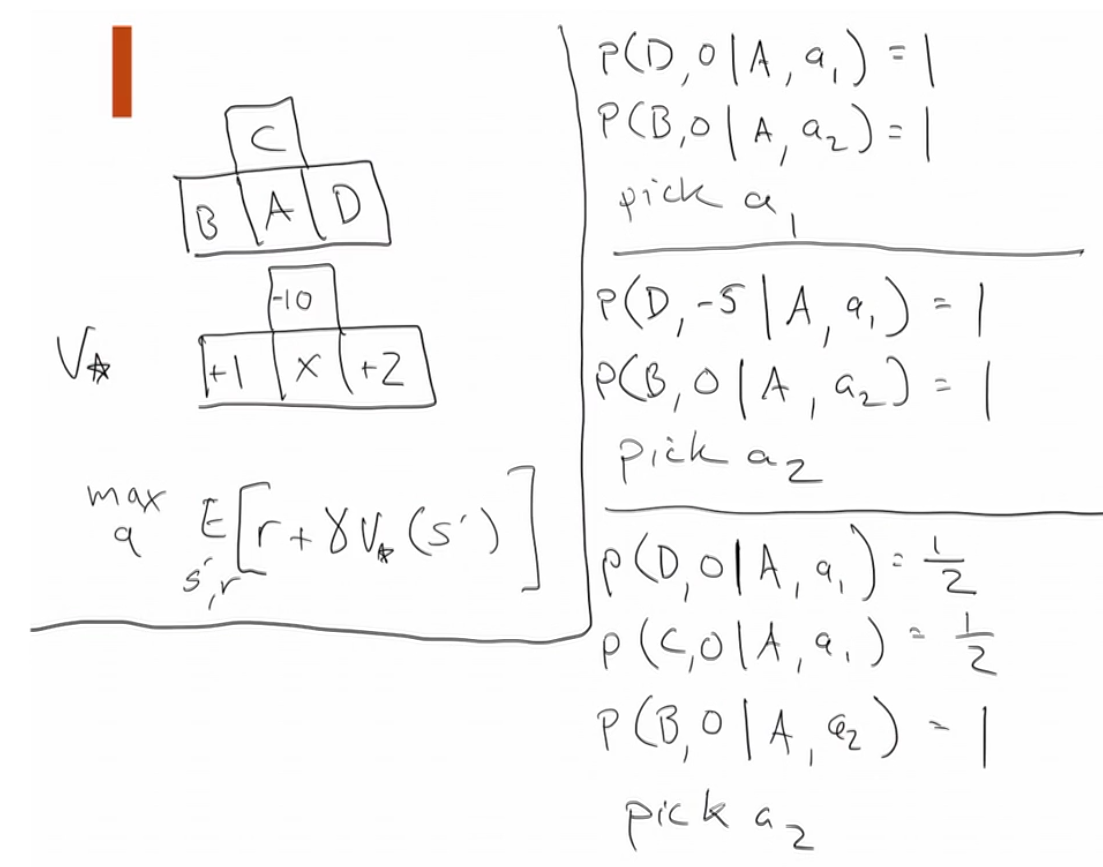 C
B A D
-10
V⋆
+1 X +2
max
a
E[r + γV⋆(s′)]
s′,r
P(D,0|A,a₁) = 1
P(B,0|A,a₂) = 1
pick a₁
P(D,-5|A,a₁) = 1
P(B,0|A,a₂) = 1
pick a₂
P(D,0|A,a₁) = 1/2
P(C,0|A,a₁) = 1/2
P(B,0|A,a₂) = 1
pick a₂